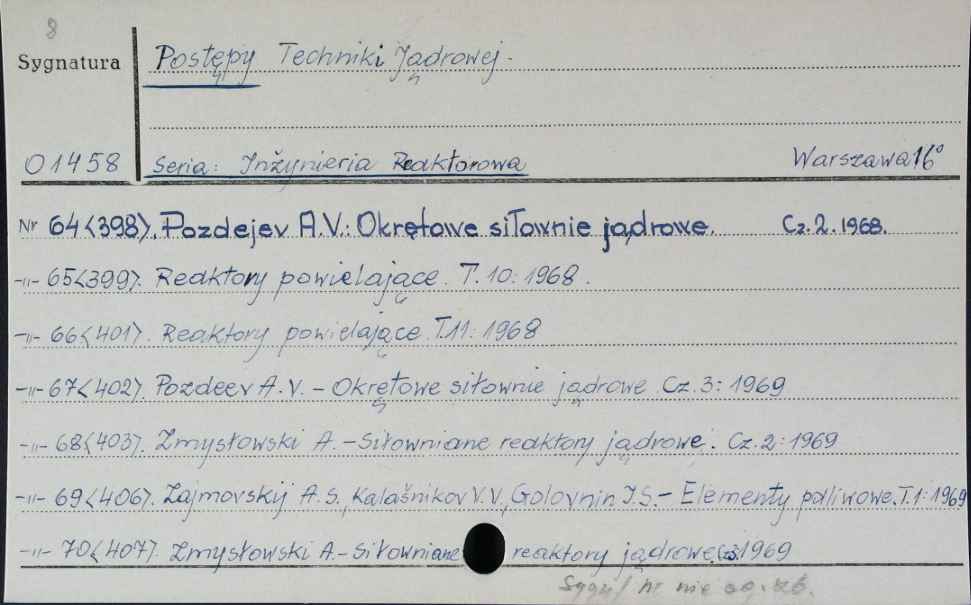 8
Sygnatura
Postępy Techniki Jądrowej.
01458
Seria: Inżynieria Reaktorowa Warszawa 16°
Nr 64<398>. Pozdejev A.V.: Okrętowe siłownie jądrowe. Cz. 2. 1968.
-"- 65<399>. Reaktory powielające. T. 10: 1968.
-"- 66<401>. Reaktory powielające. T.11: 1968
-"- 67<402>. Pozdeev A.V. - Okrętowe siłownie jądrowe. Cz. 3: 1969
-"- 68<403>. Zmysłowski A. - Siłowniane reaktory jądrowe. Cz. 2: 1969
-"- 69<406>. Zajmovskij A.S., Kalašnikov V.V., Golovnin I.S. - Elementy paliwowe. T.1: 1969
-"- 70<407>. Zmysłowski A. - Siłowniane reaktory jądrowe. Cz.3. 1969
nr nie